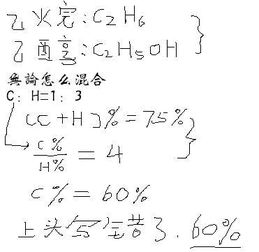 乙烷:C2H6
乙醇:C2H5OH
無論怎么混合
C:H=1:3
(C+H)%=75%
C%/H%=4
C%=60%
上头写错了.60%